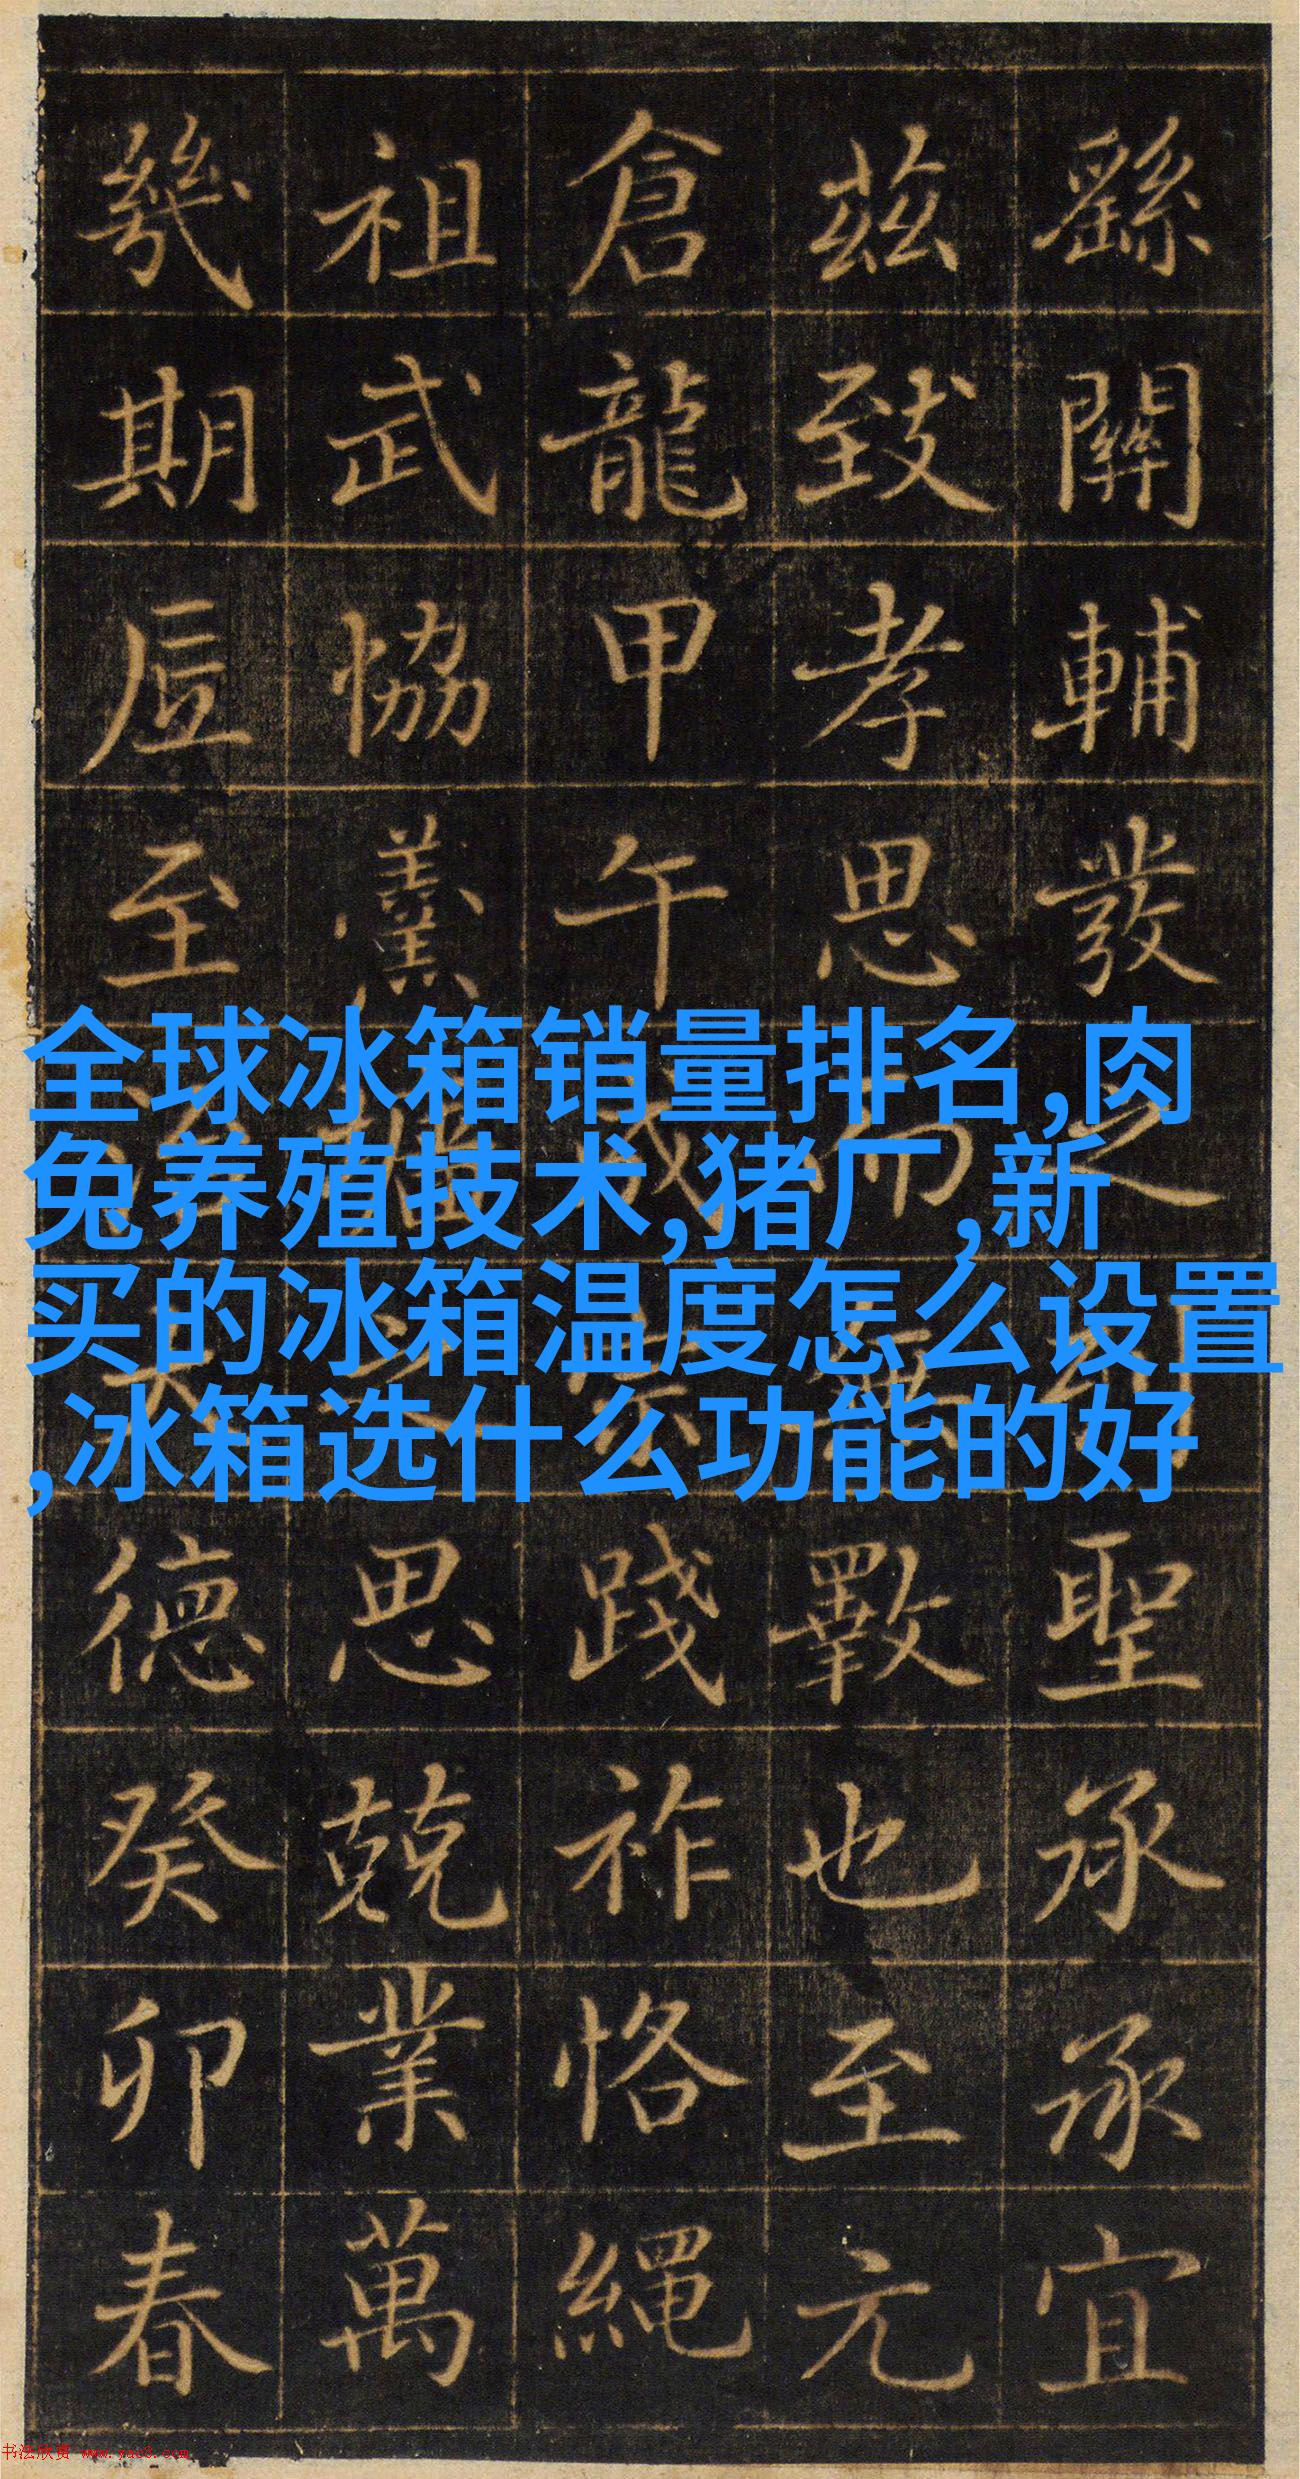 繇關輔發之聖承承宜
茲致孝思而無斁也至元
倉龍甲午成宗踐祚恪繩
祖武恊羹墻之思兢業萬
幾期至治大德癸卯春
全球冰箱销量排名,肉
兔养殖技术,猪厂,新
买的冰箱温度怎么设置
,冰箱选什么功能的好
书法欣赏 www.yac8.com